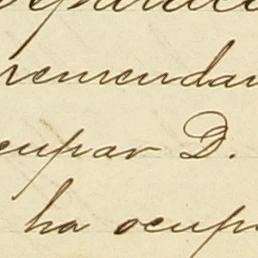 remendar
cupar D.
ha ocup